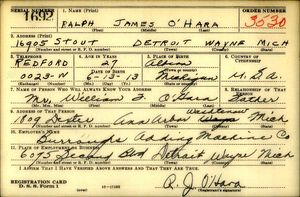 SERIAL NUMBER 1. NAME (Print) ORDER NUMBER
1692 RALPH JAMES O'HARA 3530
2. ADDRESS (Print)
16905 STOUT DETROIT WAYNE MICH
3. TELEPHONE 4. AGE IN YEARS 5. PLACE OF BIRTH 6. COUNTRY OF CITIZENSHIP
REDFORD 27
0023-N 6-13-13 Michigan U.S.A.
7. NAME OF PERSON WHO WILL ALWAYS KNOW YOUR ADDRESS 8. RELATIONSHIP OF THAT PERSON
Mr. William J O'Hara Father
9. ADDRESS OF THAT PERSON
Washtenaw
1809 Dexter Ann Arbor Mich
10. EMPLOYER'S NAME
Burroughs Adding Machine Co
11. PLACE OF EMPLOYMENT OR BUSINESS
6075 Second Blvd Detroit Wayne Mich
I AFFIRM THAT I HAVE VERIFIED ABOVE ANSWERS AND THAT THEY ARE TRUE.
REGISTRATION CARD
D. S. S. Form 1 R. J. O'Hara